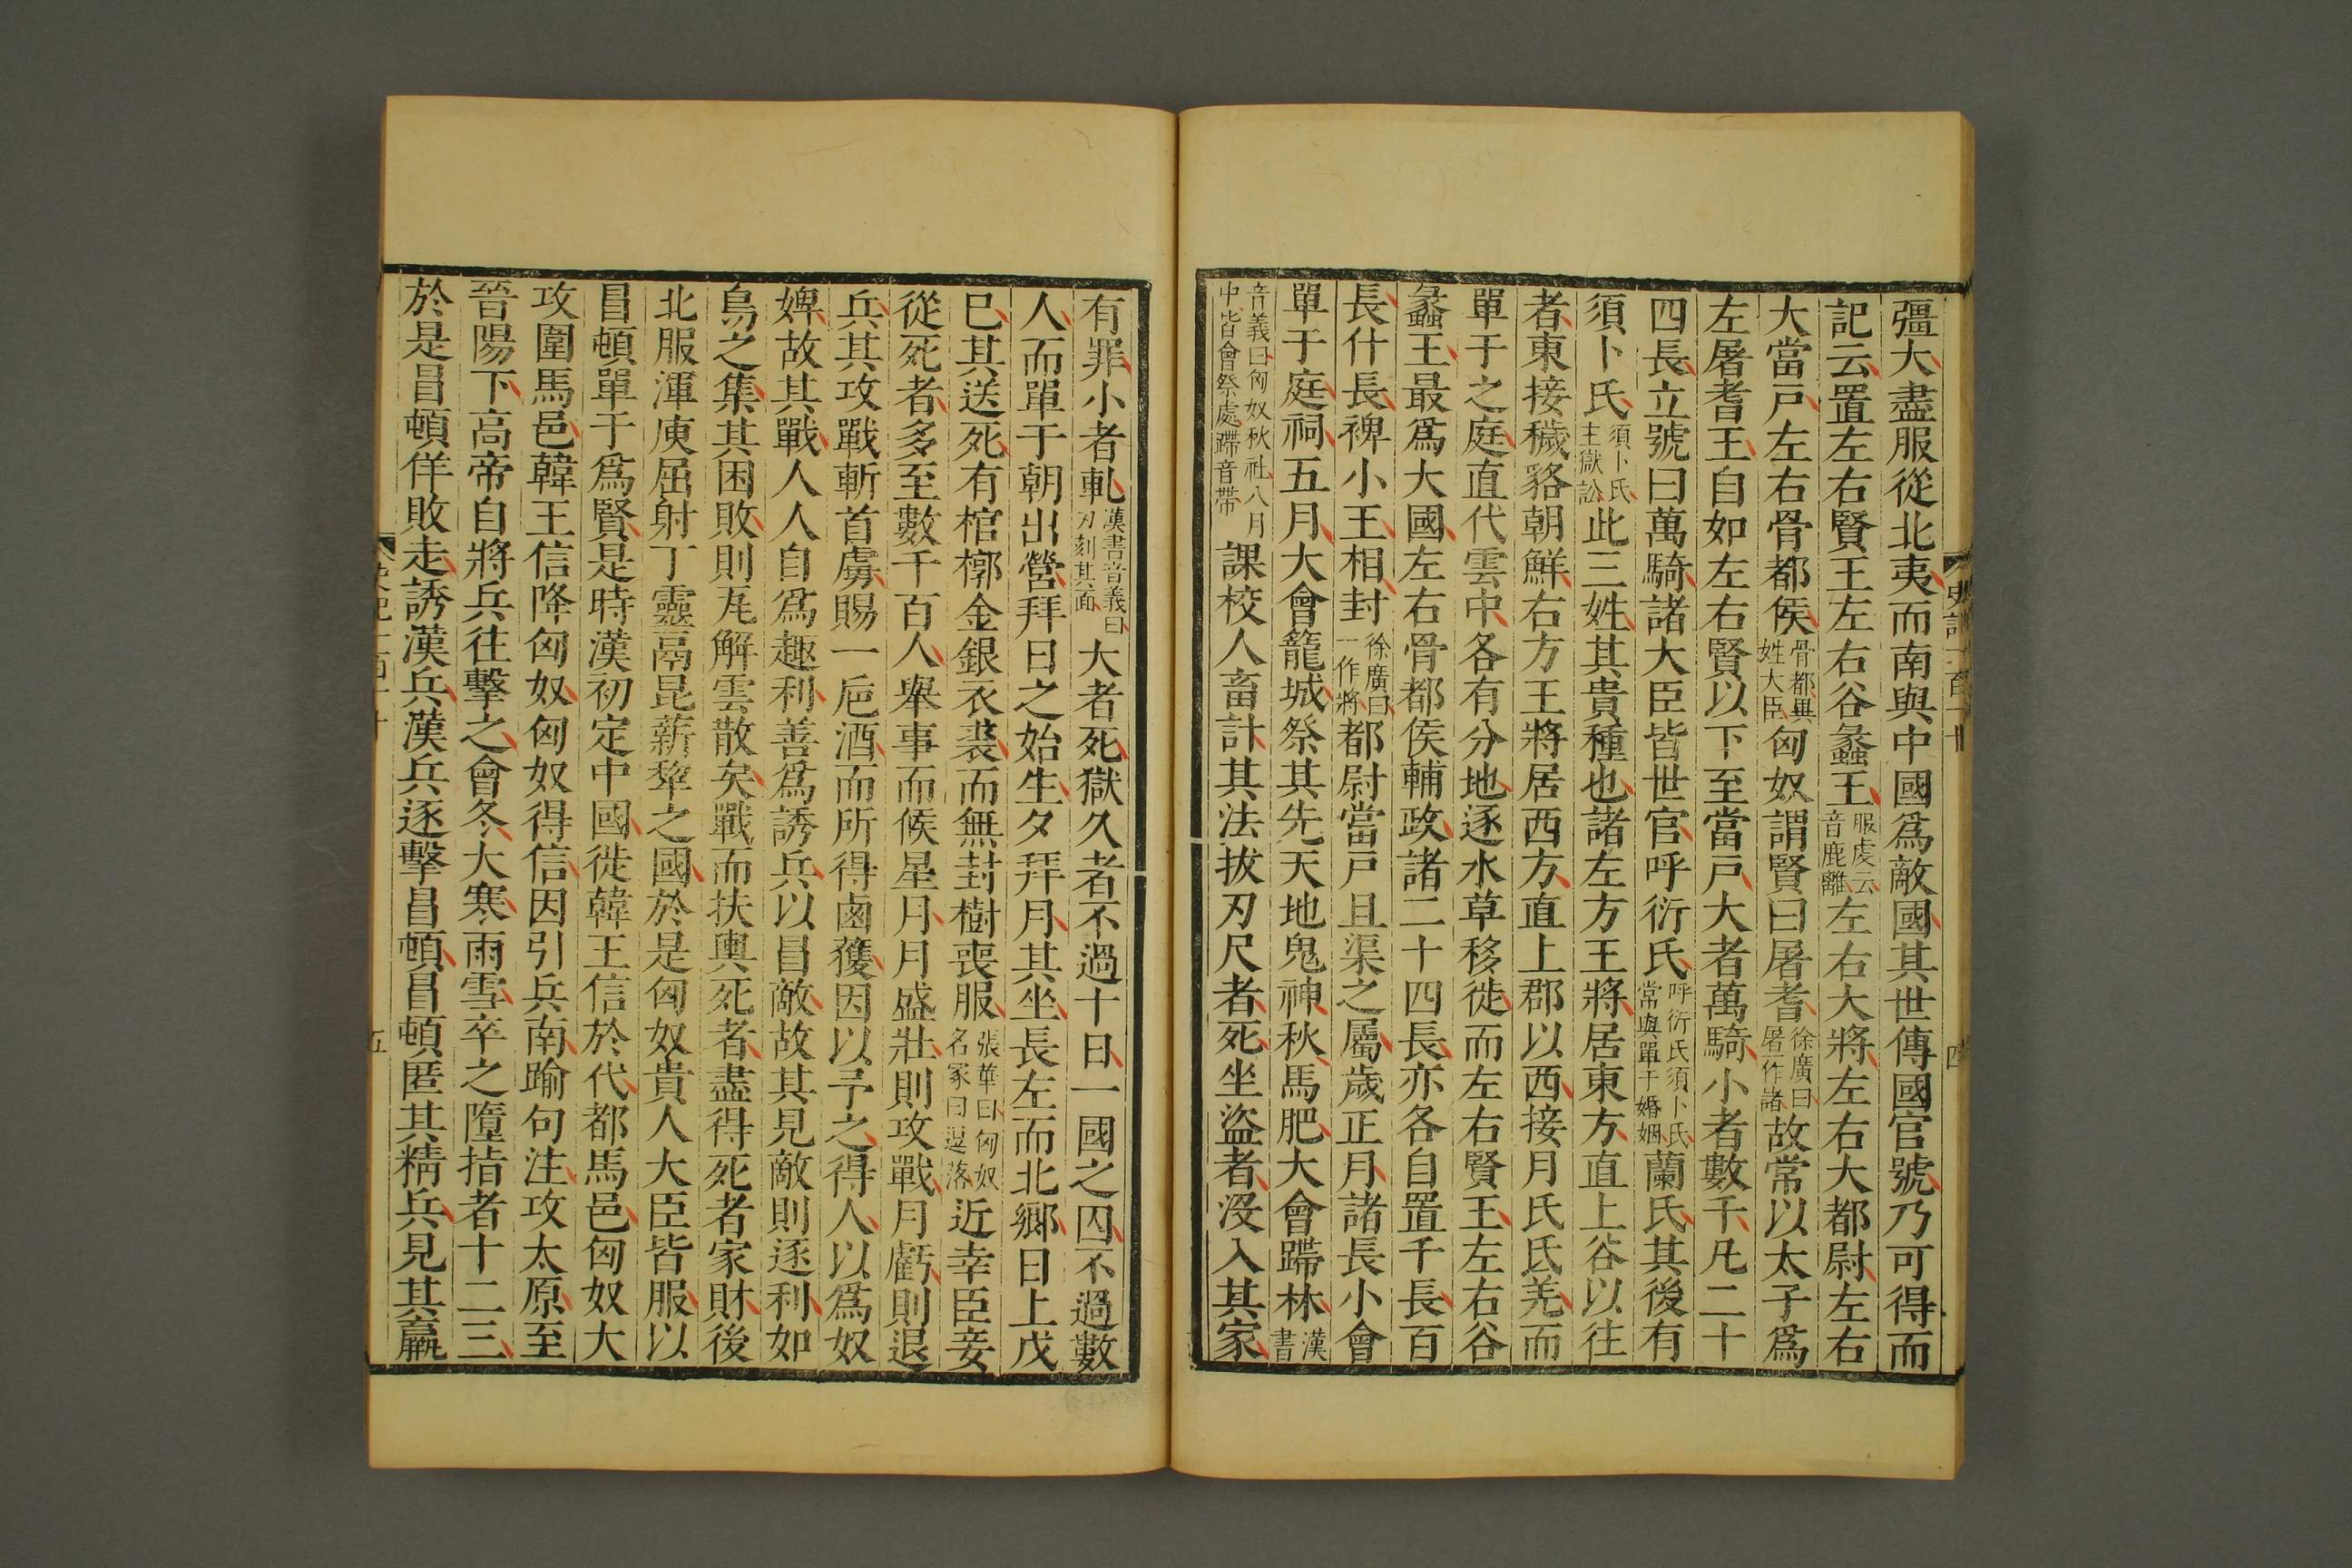 彊大盡服從北夷而南與中國爲敵國其世傳國官號乃可得而
記云置左右賢王左右谷蠡王服虔云音鹿離左右大將左右大都尉左右
大當戶左右骨都侯骨都異姓大臣匈奴謂賢曰屠耆徐廣曰屠一作諸故常以太子爲
左屠耆王自如左右賢以下至當戶大者萬騎小者數千凡二十
四長立號曰萬騎諸大臣皆世官呼衍氏呼衍氏須卜氏常與單于婚姻蘭氏其後有
須卜氏須卜氏主獄訟此三姓其貴種也諸左方王將居東方直上谷以往
者東接穢貉朝鮮右方王將居西方直上郡以西接月氏氐羌而
單于之庭直代雲中各有分地逐水草移徙而左右賢王左右谷
蠡王最爲大國左右骨都侯輔政諸二十四長亦各自置千長百
長什長裨小王相封徐廣曰一作將都尉當戶且渠之屬歲正月諸長小會
單于庭祠五月大會籠城祭其先天地鬼神秋馬肥大會蹛林漢書
音義曰匈奴秋社八月中皆會祭處蹛音帶課校人畜計其法拔刃尺者死坐盜者沒入其家
史記一百一十
四
有罪小者軋漢書音義曰刃刻其面大者死獄久者不過十日一國之囚不過數
人而單于朝出營拜日之始生夕拜月其坐長左而北鄉日上戊
巳其送死有棺槨金銀衣裘而無封樹喪服張華曰匈奴名冢曰逗落近幸臣妾
從死者多至數千百人舉事而候星月月盛壯則攻戰月虧則退
兵其攻戰斬首虜賜一巵酒而所得鹵獲因以予之得人以爲奴
婢故其戰人人自爲趣利善爲誘兵以冒敵故其見敵則逐利如
鳥之集其困敗則瓦解雲散矣戰而扶輿死者盡得死者家財後
北服渾庾屈射丁靈鬲昆薪犂之國於是匈奴貴人大臣皆服以
冒頓單于爲賢是時漢初定中國徙韓王信於代都馬邑匈奴大
攻圍馬邑韓王信降匈奴匈奴得信因引兵南踰句注攻太原至
晉陽下高帝自將兵往擊之會冬大寒雨雪卒之墮指者十二三
於是冒頓佯敗走誘漢兵漢兵逐擊冒頓冒頓匿其精兵見其羸
五